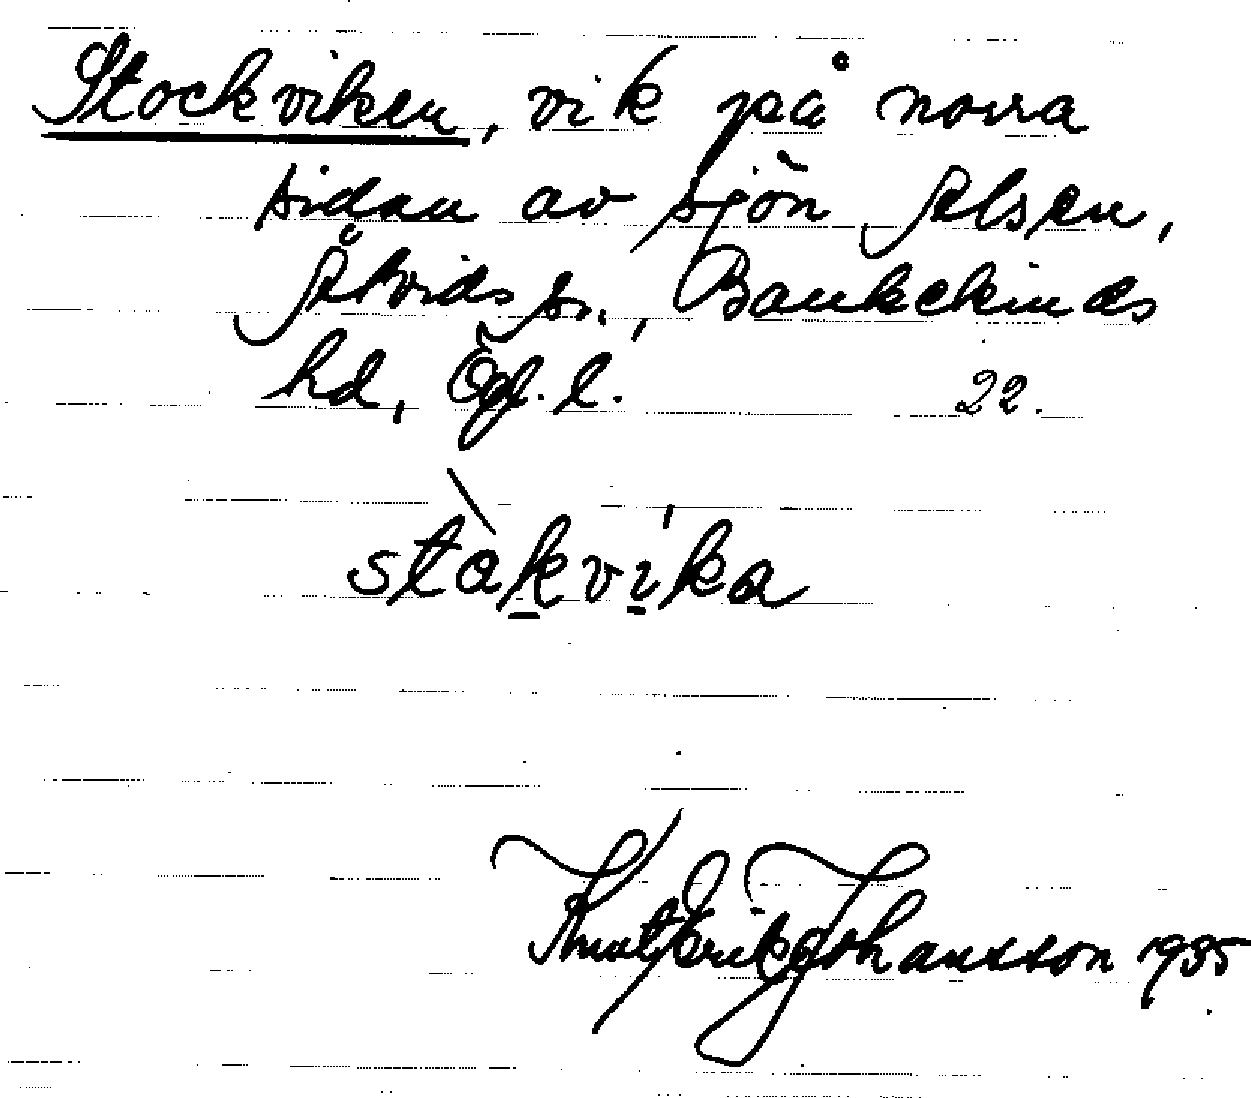 Stockviken, vik på norra
sidan av sjön Alsen,
Åtvids sn., Bankekinds
hd, Ögl. l. 22.
stàkvíka
Knut Erik Johansson 1935